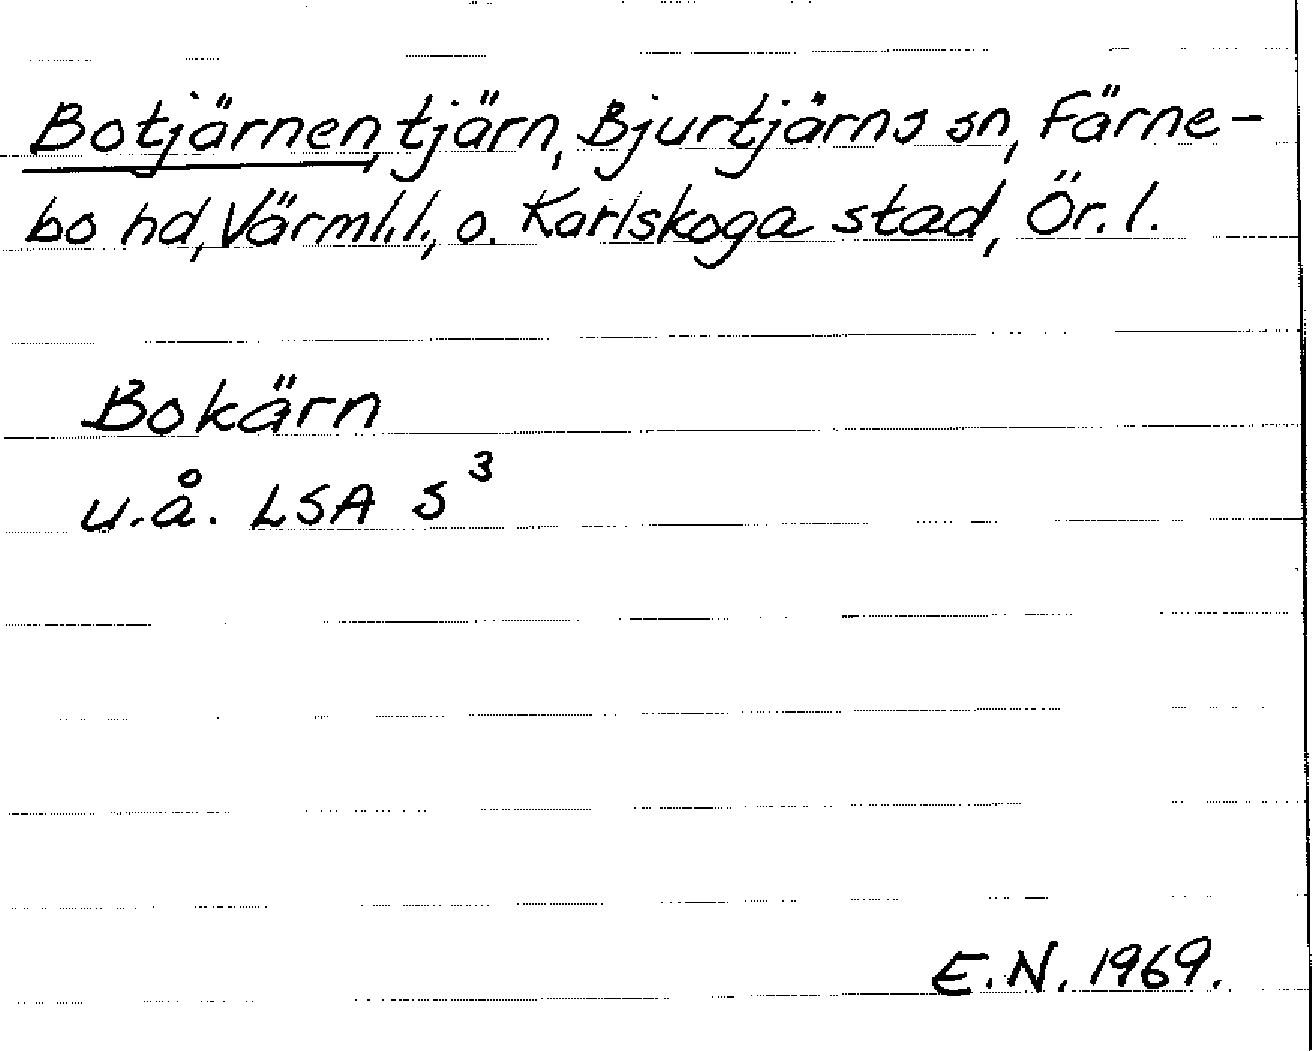 Botjärnen, tjärn, Bjurtjärns sn, Färne-
bo hd, Värml.l., o. Karlskoga stad, Ör.l.
Bokärn
u.å. LSA S³
E.N. 1969.